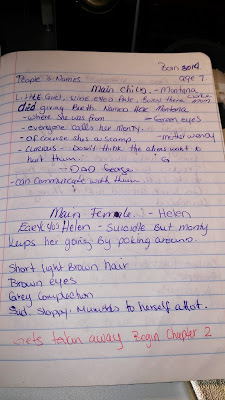 Born 3014
People's Names age 7.
Main chick - Montana
1. Little Girl, wine eyed Pale, Burns there
died giving Birth. Named Her Montana
- where she was from - Green eyes
- everyone calls her Monty.
- Of course she's a scamp - mother wendy
- Curious - Doesn't think the aliens want to
hurt them. G
- DAD George
- can Communicate with them
Main Female. - Helen
Early 40s Helen - Suicidle But monty
keeps her going by poking around.
Short light Brown hair
Brown eyes
Grey Complection
Sad, Sloppy, Mummbles to herself allot.
Gets taken away Begin Chapter 2